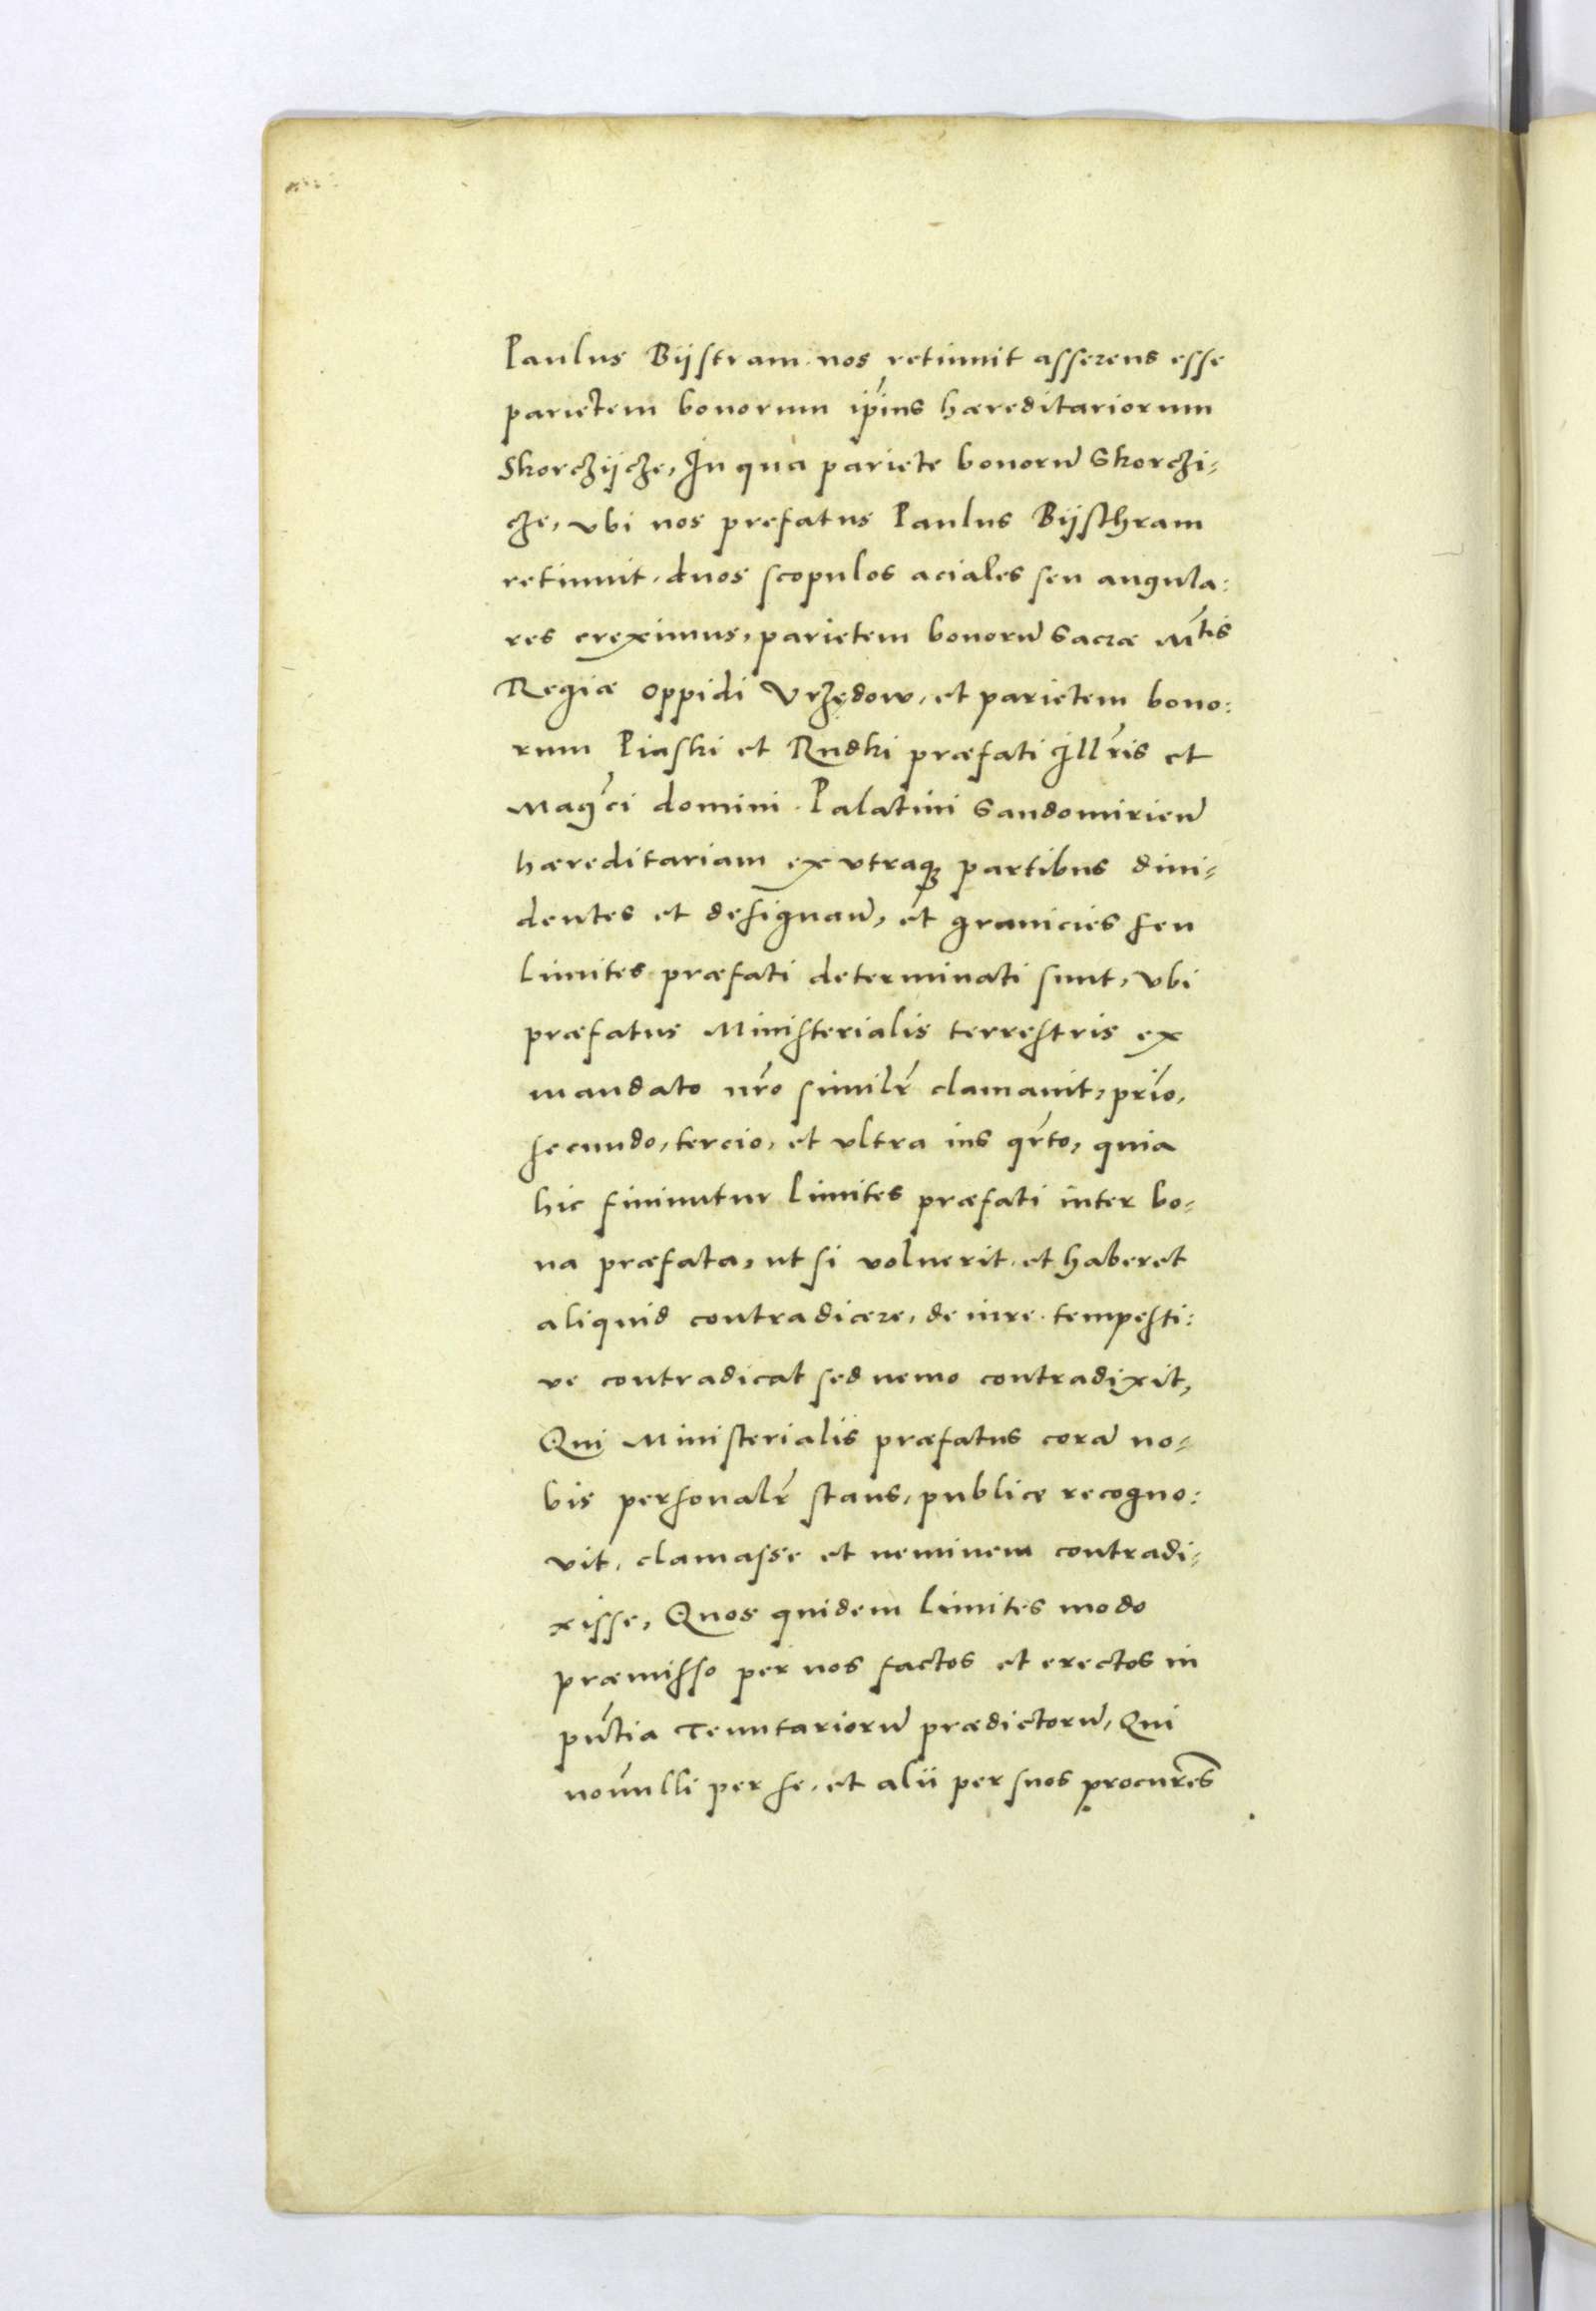 Paulus Bÿstram nos retinuit asserens esse
parietem bonorum ip̄ius hæreditariorum
Skorczÿcze, In qua pariete bonorū Skorczi-
cze, vbi nos prefatus Paulus Bÿsthram
retinuit, duos scopulos aciales seu angula:
res ereximus, parietem bonorū Sacræ M̄tis
Regiæ oppidi Vrzędow, et parietem bono:
rum Piaski et Rudki præfati Ill̄ris et
Maḡci domini Palatini Sandomirieñ
hæreditariam ex vtraqꝫ partibus diui-
dentes et designañ, et granicies seu
limites præfati determinati sunt, vbi
præfatus Ministerialis terrestris ex
mandato nr̄o similr̄ clamauit, pri̅o,
secundo, tercio, et vltra ius qr̄to, quia
hic finiuntur limites præfati inter bo-
na præfata, ut si voluerit et haberet
aliquid contradicere, de iure tempesti:
ve contradicat sed nemo contradixit,
Qui Ministerialis præfatus corā no-
bis personalr̄ stans, publice recogno:
vit, clamasse et neminem contradi-
xisse, Quos quidem limites modo
præmisso per nos factos et erectos in
pñtia Tenutariorū prædictorū, Qui
noñulli per se, et alii per suos procur̄es